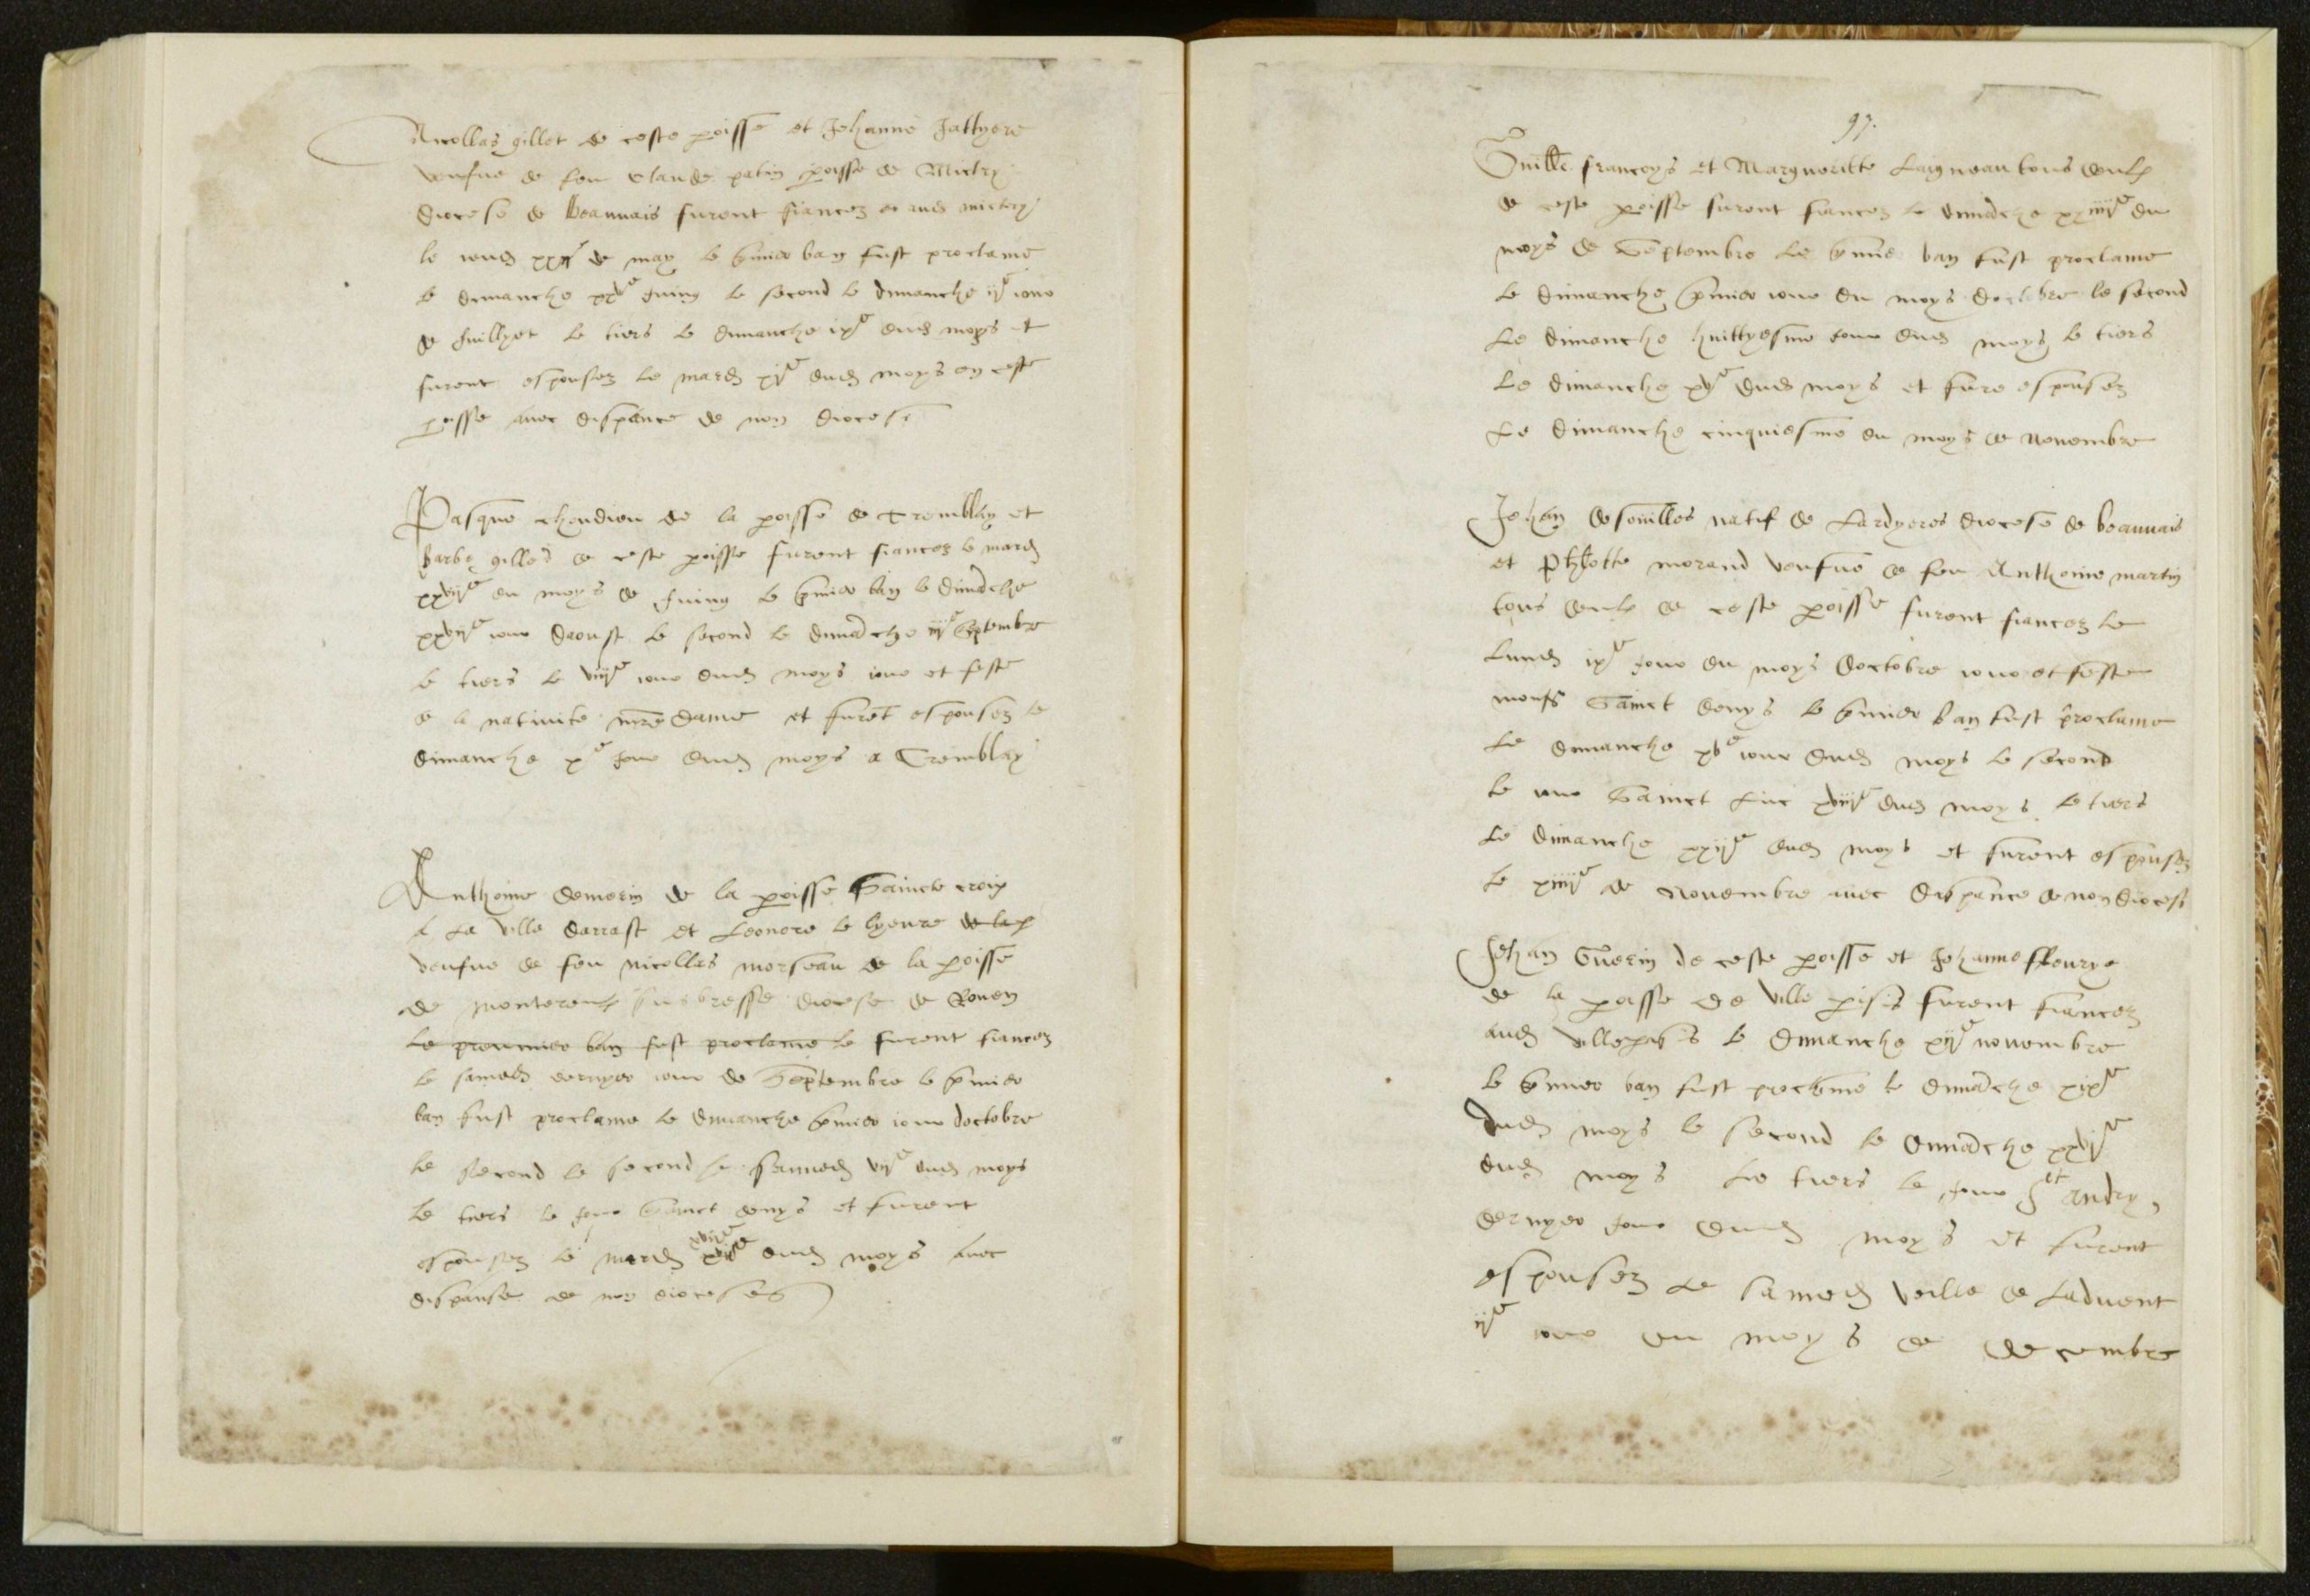 Nicollas gillet de ceste poisse et Jehanne Jallyere
veufue de feu Claude patin poisse de Mictry
diocese de Beauuais furent fiancez aud mictry
le ieud xxije de may le pmier ban fust proclame
le dimanche xxve juing le second le dimanche ije iour
de juillyet le tiers le dimanche ixe dud moys et
furent espousez le mard xje dud moys en ceste
poisse auec dispance de non diocese
Pasque chendieu de la poisse de Tremblay et
barbe gilles de ceste poisse furent fiancez le mard
xxvije du moys de juing le pmier ban le dimache
xxvije iour daoust le second le dimache iije Septembre
le tiers le viije iour dud moys iour et feste
de la natiuite nre dame et furet espousez le
dimanche xe jour dud moys a Tremblay
Anthoine demorin de la poisse Saincte croix
a la ville darrast et Leonore le lyeure de la p
veufue de feu nicollas morseau de la poisse
de montereul sus bresse diocese de Rouen
Le preumier ban fust proclame le furent fiancez
le samed dernyer iour de Septembre le pmier
ban fust proclame le dimanche pmier iour doctobre
le second le second le sammed vije dud moys
le tiers le jour Sainct denys et furent
espousez le mard xvije xvije dud moys auec
dispanse de non dioceses
97.
Guille francoys et Marguoritte Laigneau tous deulx
de ceste poisse furent fiancez le dimache xxiiije du
moys de Septembre le pmie ban fust proclame
le dimanche pmier iour du moys doctobre le second
Le dimanche huittyesme jour dud moys le tiers
Le dimanche xve dud moys et fure espousez
Le dimanche cinquiesme du moys de nouembre
Jehan desouilles natif de Lardyeres diocese de beauuais
et Phlotte morand veufue de feu Anthoine martin
tous deulx de ceste poisse furent fiancez le
Lund ixe jour du moys doctobre iour et feste
monsr Sainct denys le pmier ban fust proclame
Le dimanche xve iour dud moys le second
le iour Sainct Luc xviije dud moys le tiers
Le dimanche xxije dud moys et furent espousez
le xiiije de Nouembre auec dispance de non diocese
Jehan Guerin de ceste poisse et Jehanne ffleurye
de la poisse de ville pisis furent fiancez
aud villepisis le dimanche xije nouembre
le pmier ban fust proclame le dimache xixe
dud moys le second le dimache xxvje
dud moys Le tiers le jour Sct andry
dernyer jour dud moys et furent
espousez Le samed veille de Laduent
ije iour du moys de decembre